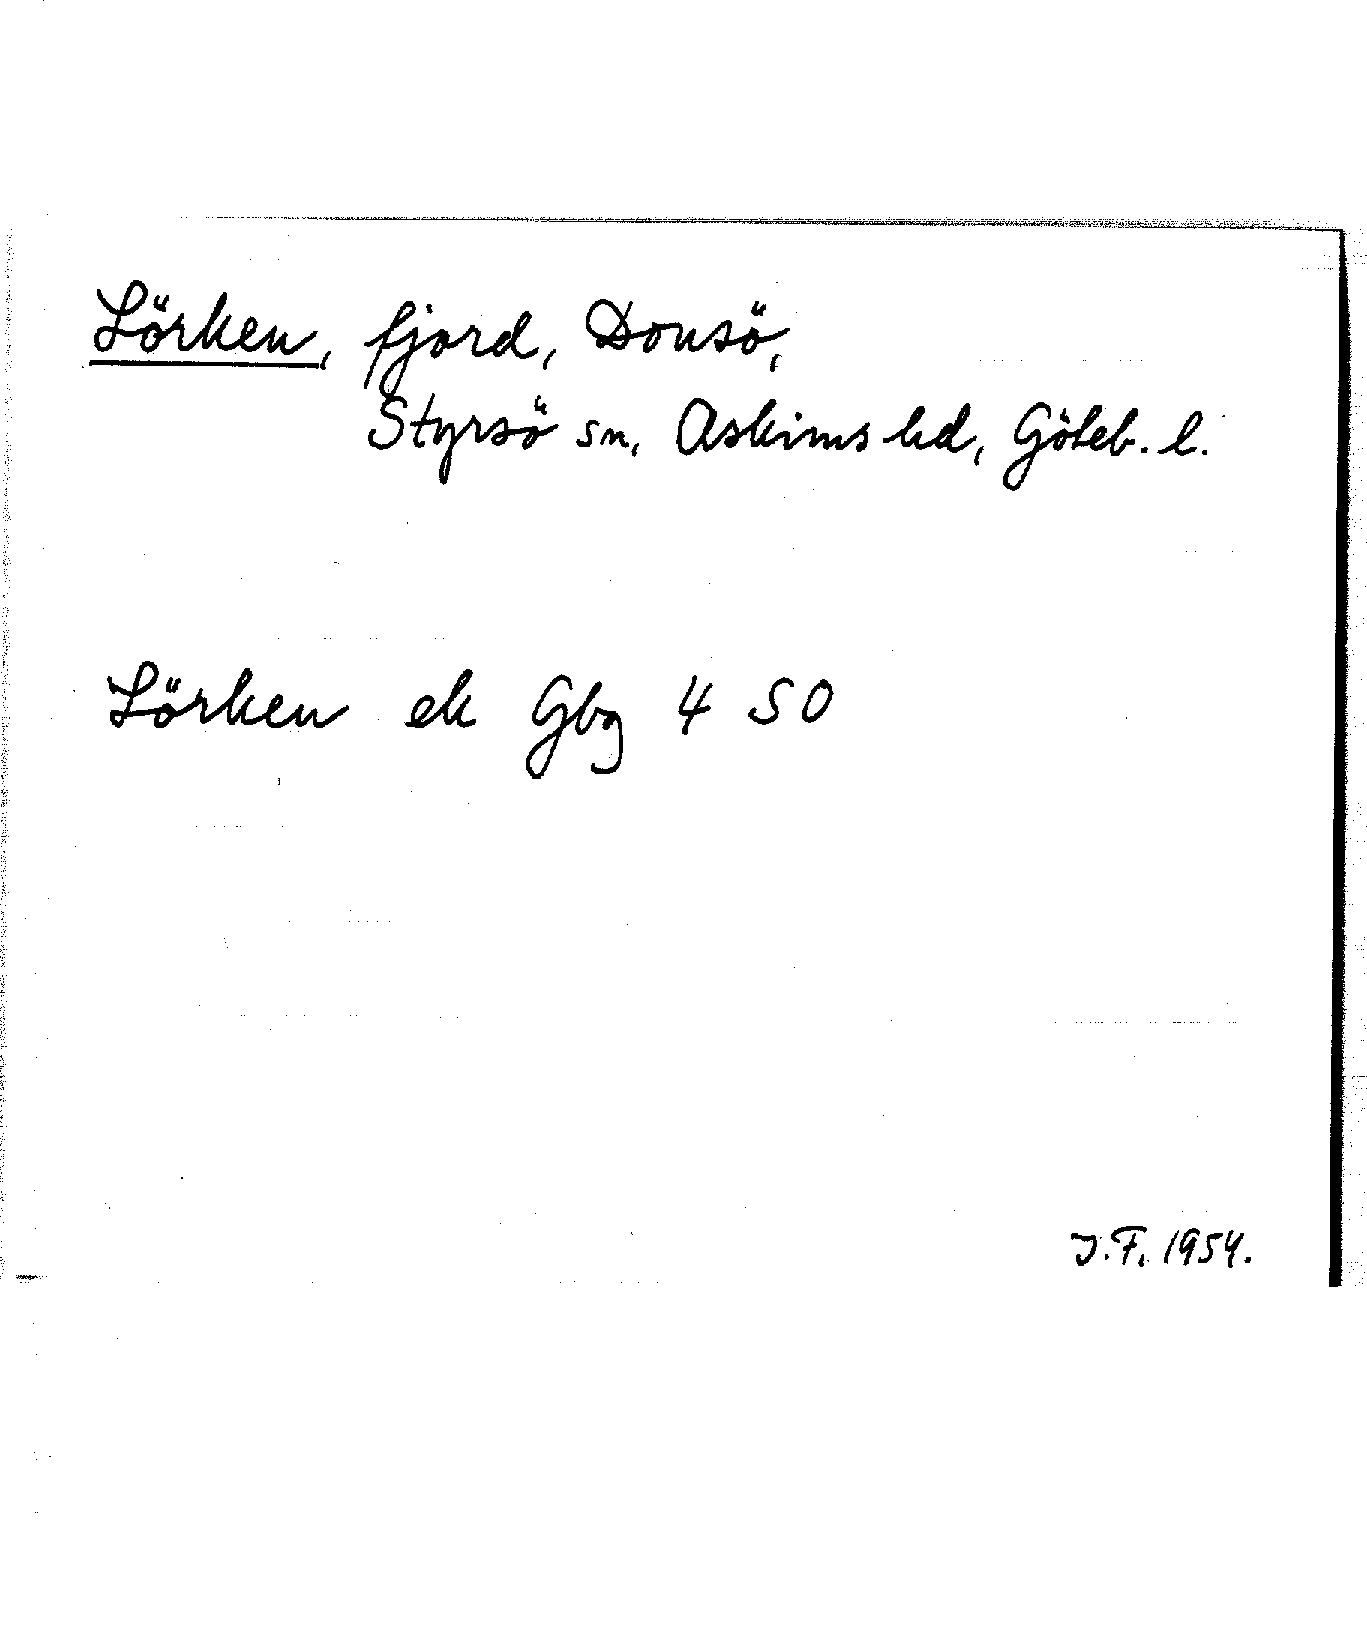 Lörken, fjord, Donsö,
Styrsö sn, Askims hd, Göteb. l.
Lörken ek Gbg 4 SO
J.F. 1954.